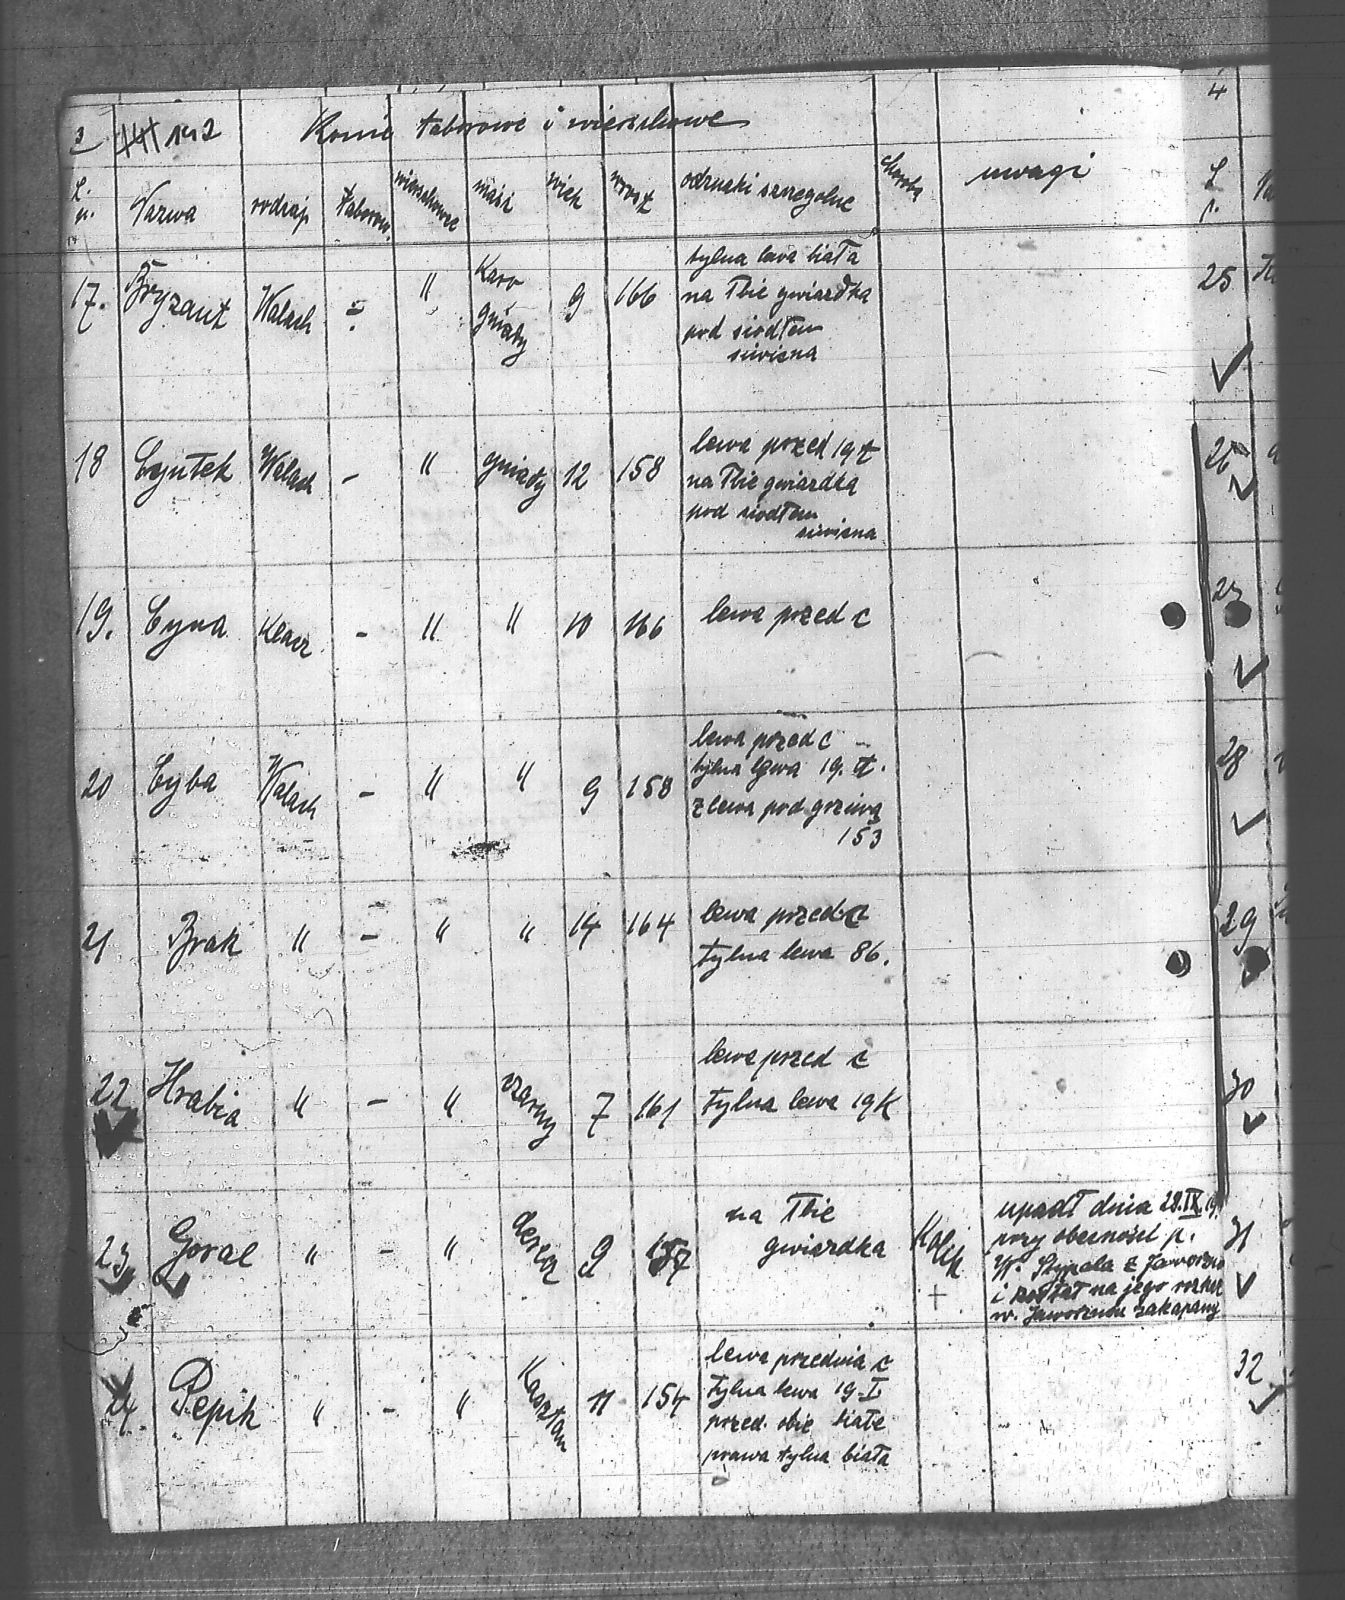 3 142 Konie taborowe i wierzchowe
L. p. Nazwa rodzaj taborow. wierzchowe maść wiek wrost odznaki szczegolne choroba uwagi
17. Bryzant Walach - " Karo gniady 9 166 tylna lewa biała
na łbie gwiazdka
pod siodłem
siwizna
18 Cyntek Walach - " gniady 12 158 lewa przed 19 t
na łbie gwiazdka
pod siodłem
siwizna
19. Cyna Klacz - " " 10 166 lewa przed c
20 Cyba Walach - " " 9 158 lewa przed c
tylna lewa 19. t.
z lewa pod grziwą
153
21 Brak " - " " 14 164 lewa przed c
tylna lewa 86.
22 Hrabia " - " czarny 7 161 lewa przed c
tylna lewa 19 K
23 Goral " - " 9 na łbie
gwiazdka Kolik +
upadł dnia 28.IX.19.
przy obecności p.
W. Stypala z Jaworzno
i został na jego rozkaz
w. Jaworznu zakapany
24. Pepik " - " Kasztan 11 154 lewa przednia c
tylna lewa 19 I
przed. obie białe
prawa tylna biała
4
L p.
25
26
27
28
29
30
31
32